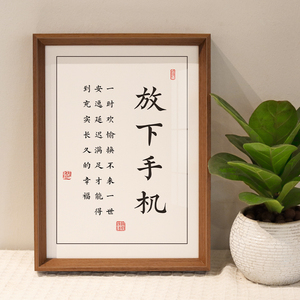 放下手机
一时欢愉换不来一世
安逸延迟满足才能得
到充实长久的幸福